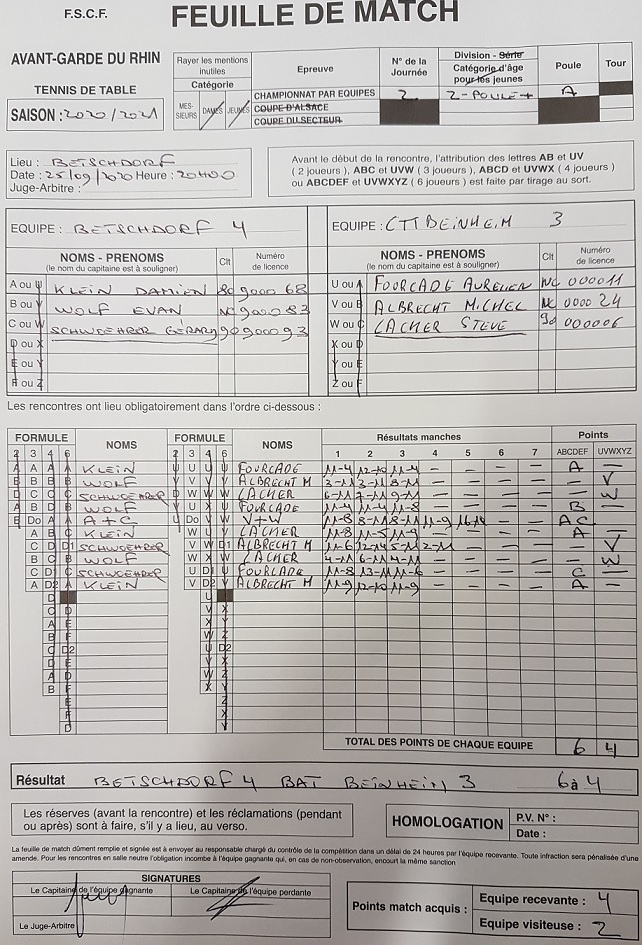 F.S.C.F. FEUILLE DE MATCH
AVANT-GARDE DU RHIN
TENNIS DE TABLE
SAISON : 2020/2021
Rayer les mentions inutiles
Catégorie
MESSIEURS DAMES JEUNES
Epreuve
CHAMPIONNAT PAR EQUIPES
COUPE D'ALSACE
COUPE DU SECTEUR
N° de la Journée
2
Division - Série
Catégorie d'âge
pour les jeunes
2-POULE
Poule
A
Tour
Lieu : BETSCHDORF
Date : 25/09/2020 Heure : 20H00
Juge-Arbitre :
Avant le début de la rencontre, l'attribution des lettres AB et UV
( 2 joueurs ), ABC et UVW ( 3 joueurs ), ABCD et UVWX ( 4 joueurs )
ou ABCDEF et UVWXYZ ( 6 joueurs ) est faite par tirage au sort.
EQUIPE : BETSCHDORF 4
NOMS - PRENOMS Clt Numéro de licence
(le nom du capitaine est à souligner)
A ou U KLEIN DAMIEN 90000 68
B ou V WOLF EVAN NC 90000 83
C ou W SCHWOEHRER GERARD 90 90000 93
D ou X
E ou Y
F ou Z
EQUIPE : CTTBEINHEIM 3
NOMS - PRENOMS Clt Numéro de licence
(le nom du capitaine est à souligner)
U ou A FOURCADE AURELIEN NC 000011
V ou B ALBRECHT MICHEL NC 0000 24
W ou C LACHER STEVE 90 000006
X ou D
Y ou E
Z ou F
Les rencontres ont lieu obligatoirement dans l'ordre ci-dessous :
FORMULE NOMS FORMULE NOMS Résultats manches Points
2 3 4 6 2 3 4 6 1 2 3 4 5 6 7 ABCDEF UVWXYZ
A KLEIN U FOURCADE 11-4 12-10 11-4 - - - - A -
B WOLF V ALBRECHT M 3-11 3-11 8-11 - - - - - V
C SCHWOEHRER W LACHER 6-11 7-11 9-11 - - - - - W
B WOLF U FOURCADE 11-4 11-4 11-8 - - - - B -
Do A+C Do V+W 11-8 8-11 8-11 11-9 16-14 - - AC -
A KLEIN W LACHER 11-8 11-5 11-9 - - - - A -
C SCHWOEHRER V ALBRECHT M 11-6 12-14 5-11 2-11 - - - - V
B WOLF W LACHER 4-11 6-11 4-11 - - - - - W
C SCHWOEHRER U FOURCADE 11-8 13-11 11-6 - - - - C -
A KLEIN V ALBRECHT M 11-9 12-10 11-9 - - - - A -
TOTAL DES POINTS DE CHAQUE EQUIPE 6 4
Résultat BETSCHDORF 4 BAT BEINHEIM 3 6 à 4
Les réserves (avant la rencontre) et les réclamations (pendant
ou après) sont à faire, s'il y a lieu, au verso.
HOMOLOGATION
P.V. N° :
Date :
La feuille de match dûment remplie et signée est à envoyer au responsable chargé du contrôle de la compétition dans un délai de 24 heures par l'équipe recevante. Toute infraction sera pénalisée d'une
amende. Pour les rencontres en salle neutre l'obligation incombe à l'équipe gagnante qui, en cas de non-observation, encourt la même sanction
SIGNATURES
Le Capitaine de l'équipe gagnante Le Capitaine de l'équipe perdante
Le Juge-Arbitre
Points match acquis :
Equipe recevante : 4
Equipe visiteuse : 2